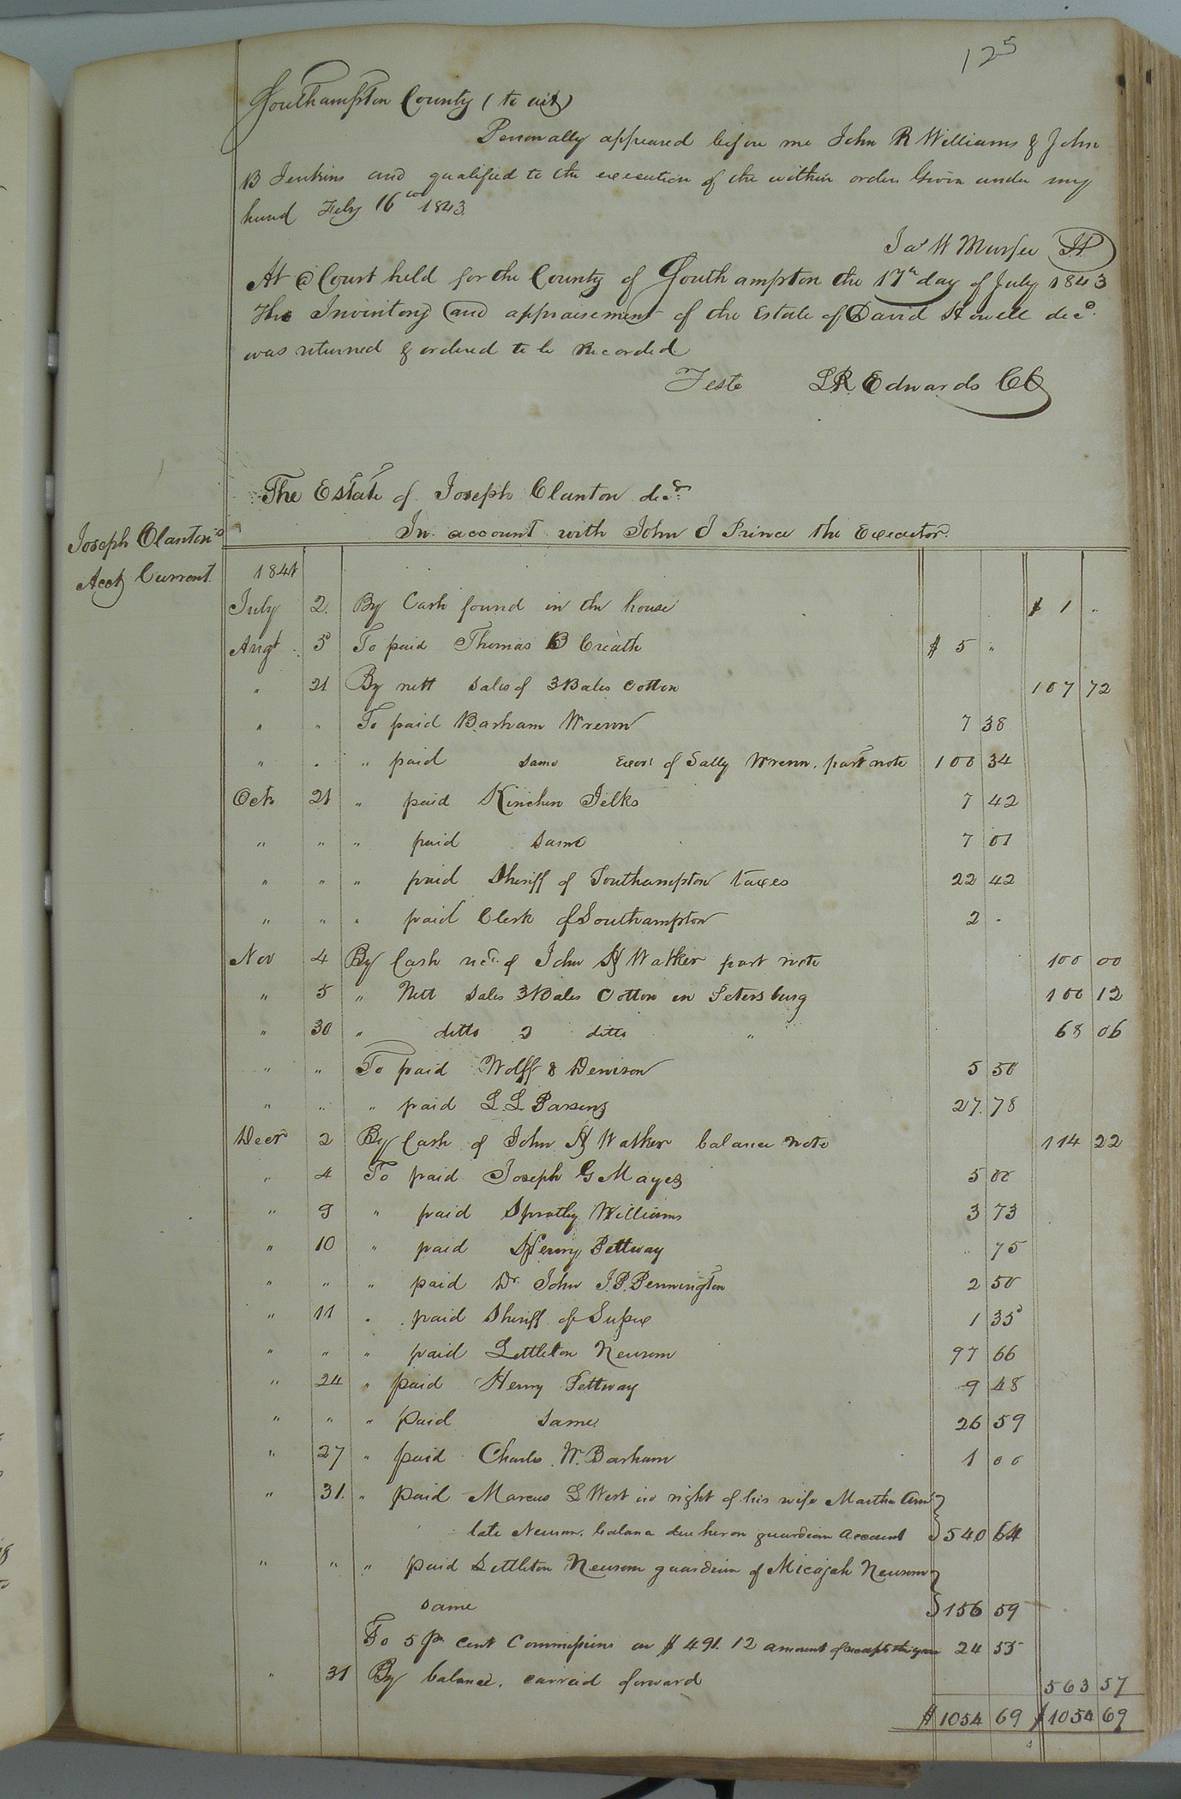 125
Southampton County (to wit)
Personally appeared before me John R Williams & John
B Jenkins and qualified to the execution of the within order Given under my
hand July 16 1843
Jas W Murfee JP
At a Court held for the County of Southampton the 17th day of July 1843
The Inventory and appraisement of the Estate of David Howell decd.
was returned & ordered to be Recorded
Teste LR Edwards CC
The Estate of Joseph Clanton decd.
In account with John J Prince the Executor.
Joseph Clanton's
Acct Current
1841
July 2. By Cash found in the house $ 1 "
Augt 5 To paid Thomas B Creath $ 5 "
" 21 By nett Sales of 3 Bales Cotton 107 72
" " To paid Barham Wrenn 7 38
" " " paid same Exor of Sally Wrenn. part note 100 34
Octo 21 " paid Kinchen Jelks 7 42
" " " paid same 7 01
" " " paid Sheriff of Southampton taxes 22 42
" " " paid Clerk of Southampton 2 "
Nov 4 By Cash recd. of John H Walker part note 100 00
" 5 " Nett Sales 3 Bales Cotton in Petersburg 100 12
" 30 " ditto 2 ditto " 68 06
" " To paid Wolff & Denison 5 50
" " " paid L. L. Parseng 27. 78
Decr 2 By Cash of John H Walker balance note 114 22
" 4 To paid Joseph G Mayes 5 00
" 9 " paid Spratley Williams 3 73
" 10 " paid Henry Pettway " 75
" " " paid Dr John J. P. Pennington 2 50
" 11 " paid Sheriff of Sussex 1 35
" " " paid Littleton Newsom 97 66
" 24 " paid Henry Pettway 9 48
" " " paid same 26 59
" 27 " paid Charles W. Barham 1 00
" 31. " paid Marcus L West in right of his wife Martha Ann
late Newsom. balance due her on guardian account 540 64
" " " paid Littleton Newsom guardian of Micajah Newsom
same 156 59
To 5 pr cent Commissions on $491. 12 amount of receipts this year 24 55
" 31 By balance. carried forward 563 57
$1054 69 $1054 69